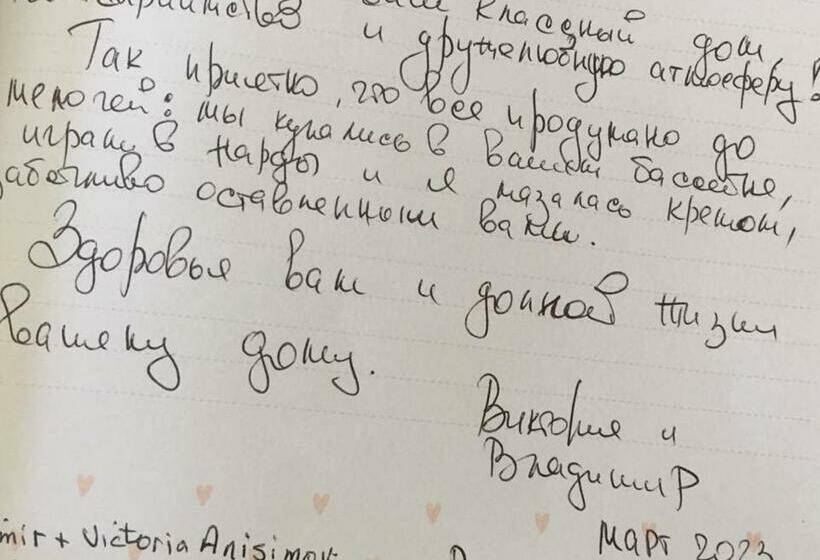 ваш классный дом
и дружелюбную атмосферу!
Так приятно, что все продумано до
мелочей: мы купались в вашем бассейне,
играли в нарды и я мазалась кремом,
заботливо оставленным вами.
Здоровья вам и долгой жизни
вашему дому.
Виктория и
Владимир
mir + Victoria Anisimov
март 2023